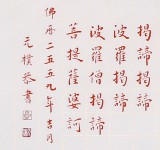 揭諦揭諦
波羅揭諦
波羅僧揭諦
菩提薩婆訶
佛曆二五五九年吉月
元樸敬書